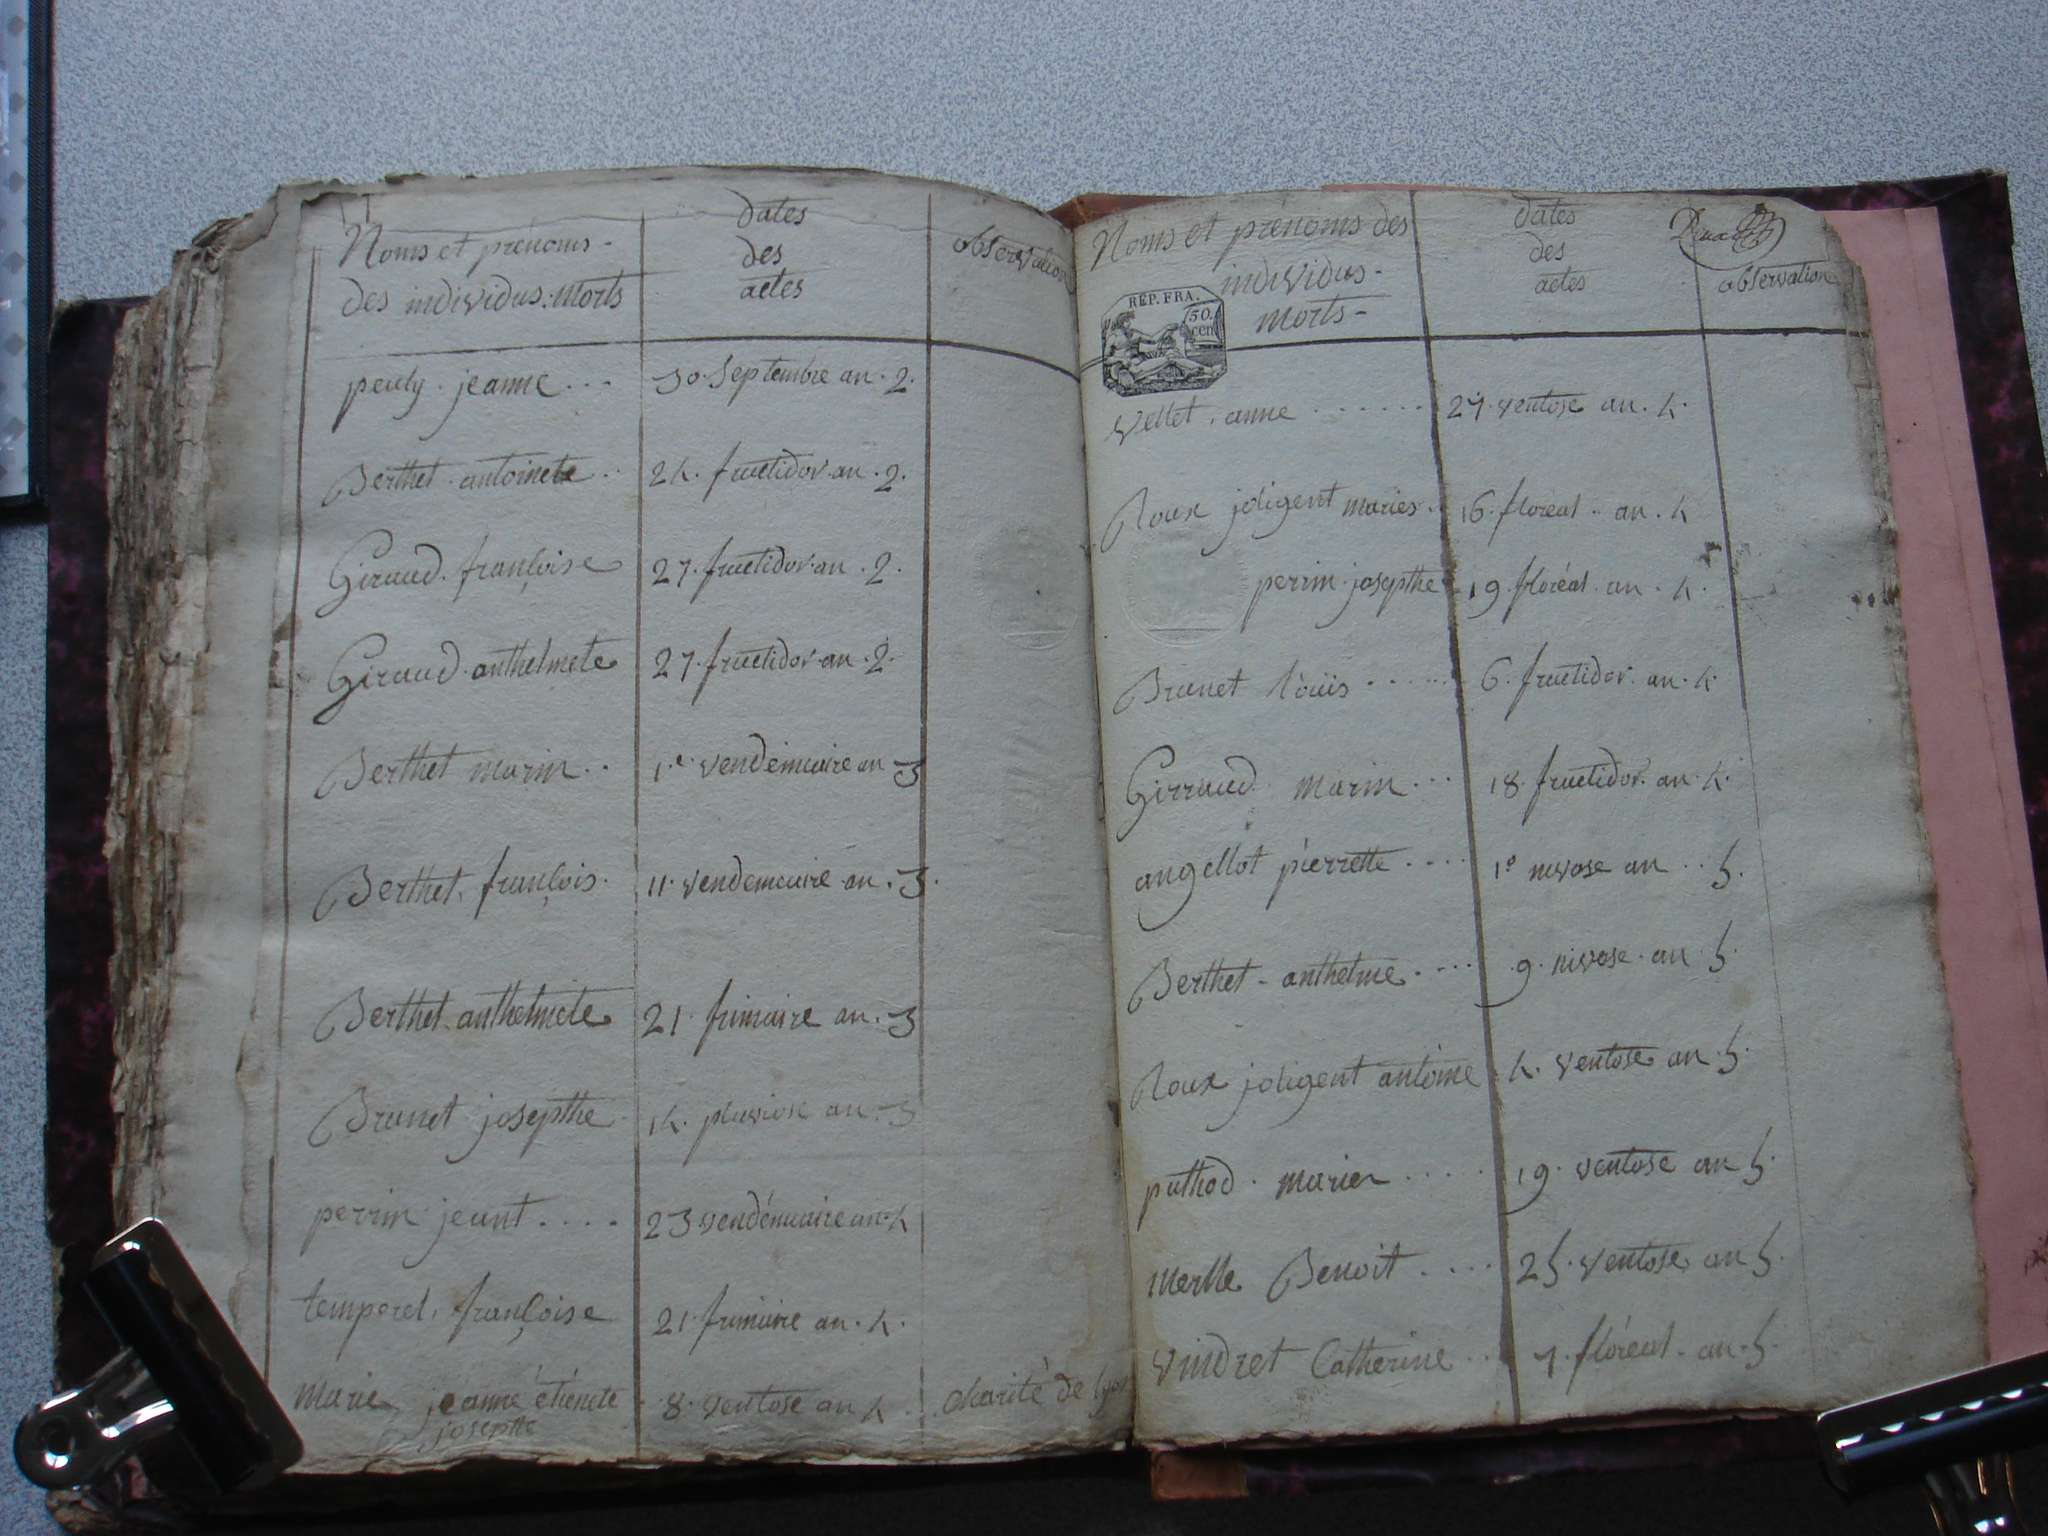 Noms et prénoms
des individus morts
dates
des
actes
observation
peuly jeanne 30 Septembre an 2.
Berthet antoinete 24. fructidor an 2.
Giraud françoise 27. fructidor an 2.
Giraud anthelmete 27. fructidor an 2.
Berthet marin 1er vendemiaire an 3
Berthet françois 11. vendemiaire an 3.
Berthet anthelmete 21 frimaire an 3
Brunet josepthe 14. pluviose an 3
perrin jeant 23 vendémiaire an 4
temporel françoise 21 frimaire an 4.
Marie jeanne étienete 8. ventose an 4 Charité de lyon
josepthe
Noms et prénoms des
individus
morts
dates
des
actes
observation
RÉP. FRA.
50.
cen.
Vellet anne 27. ventose an 4.
Roux joligent maries 16. floreal an 4
perrin josepthe 19 floréal an 4.
Brunet loüis 6. fructidor an 4.
Girraud marin 18. fructidor an 4.
angellot pierrette 1o nivose an 5.
Berthet anthelme 9. nivose an 5.
Roux joligent antoine 4. ventose an 5.
puthod marie 19. ventose an 5.
Merlle Benoit 25. ventose an 5.
Vindret Catherine 7. floréal an 5.